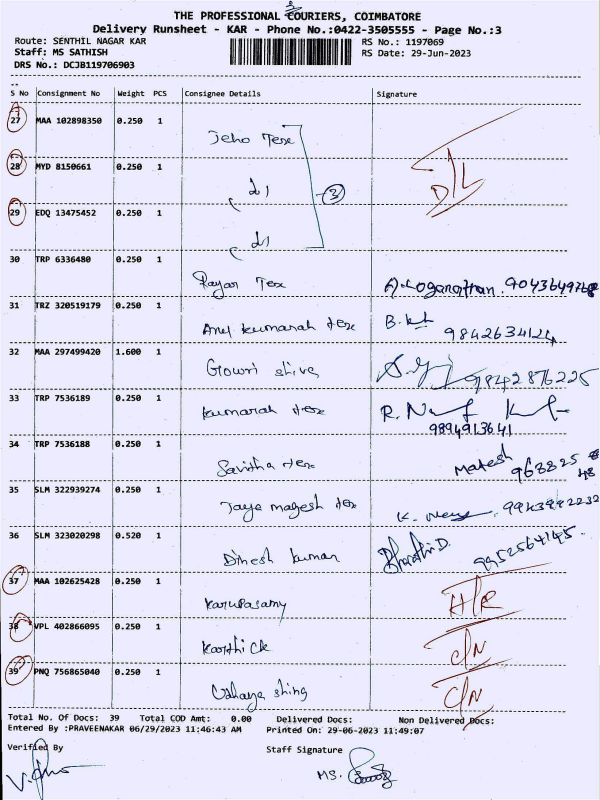 THE PROFESSIONAL COURIERS, COIMBATORE
Delivery Runsheet - KAR - Phone No.:0422-3505555 - Page No.:3
Route: SENTHIL NAGAR KAR RS No.: 1197069
Staff: MS SATHISH RS Date: 29-Jun-2023
DRS No.: DCJB119706903
S No Consignment No Weight PCS Consignee Details Signature
27 MAA 102898350 0.250 1 Jeho Tex D/L
28 MYD 8150661 0.250 1 3
29 EDQ 13475452 0.250 1
30 TRP 6336480 0.250 1 Rayar Tex A.Loganathan. 9043649768
31 TRZ 320519179 0.250 1 kumaran tex 9842634124
32 MAA 297499420 1.600 1 Gowri shiva 9842876225
33 TRP 7536189 0.250 1 kumaran tex R.
9894913641
34 TRP 7536188 0.250 1 Savitha tex Mahesh
35 SLM 322939274 0.250 1 Jaya magesh tex K.
36 SLM 323020298 0.520 1 Dinesh kumar Bharathi D. 9952564145.
37 MAA 102625428 0.250 1 Karupasamy H/R
38 VPL 402866095 0.250 1 Karthick C/N
39 PNQ 756865040 0.250 1 C/N
Total No. Of Docs: 39 Total COD Amt: 0.00 Delivered Docs: Non Delivered Docs:
Entered By :PRAVEENAKAR 06/29/2023 11:46:43 AM Printed On: 29-06-2023 11:49:07
Verified By Staff Signature
MS.